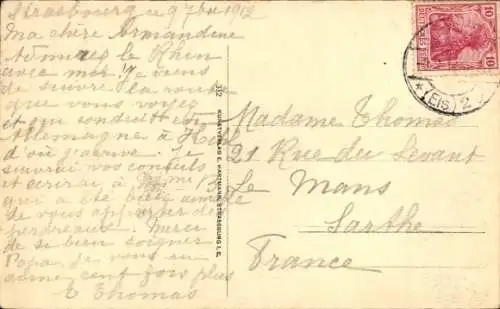 Strasbourg le 9 7bre 1912
Ma chère Armandine
Admirez le Rhin
avec moi. Je viens
de suivre la route
que vous voyez
et qui conduit en
Allemagne à Kehl
d'où j'arrive. Je
suivrai vos conseils
et écrirai à
qui a été bien aimable
de vous apporter des
perdreaux. Merci
de si bien soigner
Papa. Je vous en
aime cent fois plus
E Thomas
312 KUNSTVERLAG E. HARTMANN, STRASSBURG I. E.
Madame Thomas
21 Rue du Levant
Le Mans
Sarthe
France
10 10
* (ELS) 2